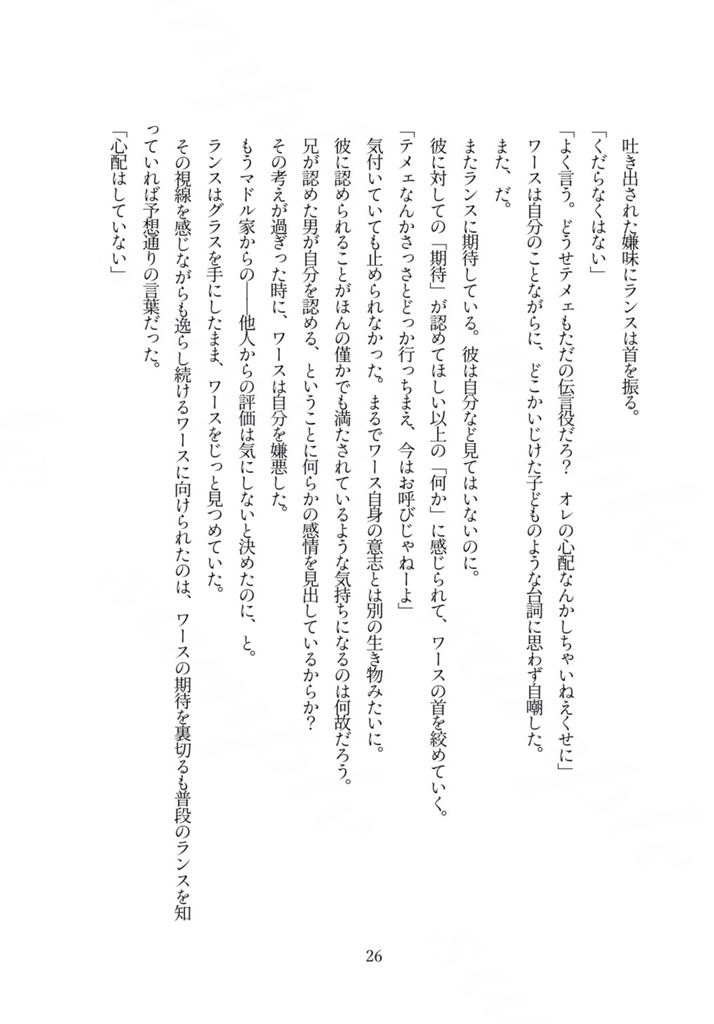 吐き出された嫌味にランスは首を振る。
「くだらなくはない」
「よく言う。どうせテメェもただの伝言役だろ？　オレの心配なんかしちゃいねえくせに」
ワースは自分のことながらに、どこかいじけた子どものような台詞に思わず自嘲した。
また、だ。
またランスに期待している。彼は自分など見てはいないのに。
彼に対しての「期待」が認めてほしい以上の「何か」に感じられて、ワースの首を絞めていく。
「テメェなんかさっさとどっか行っちまえ、今はお呼びじゃねーよ」
気付いていても止められなかった。まるでワース自身の意志とは別の生き物みたいに。
彼に認められることがほんの僅かでも満たされているような気持ちになるのは何故だろう。
兄が認めた男が自分を認める、ということに何らかの感情を見出しているからか？
その考えが過ぎった時に、ワースは自分を嫌悪した。
もうマドル家からの――他人からの評価は気にしないと決めたのに、と。
ランスはグラスを手にしたまま、ワースをじっと見つめていた。
その視線を感じながらも逸らし続けるワースに向けられたのは、ワースの期待を裏切るも普段のランスを知
っていれば予想通りの言葉だった。
「心配はしていない」
26